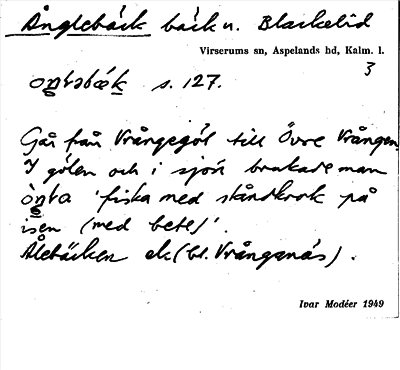 Ånglebäck bäck u. Blackelid
Virserums sn, Aspelands hd, Kalm. l.
3
s. 127.
Går från Vrångegöl till Övre Vrången.
I gölen och i sjön brukade man
'fiska med ståndkrok på
isen (med bete)'.
Ålebäcken ek (bl. Vrånganäs).
Ivar Modéer 1949